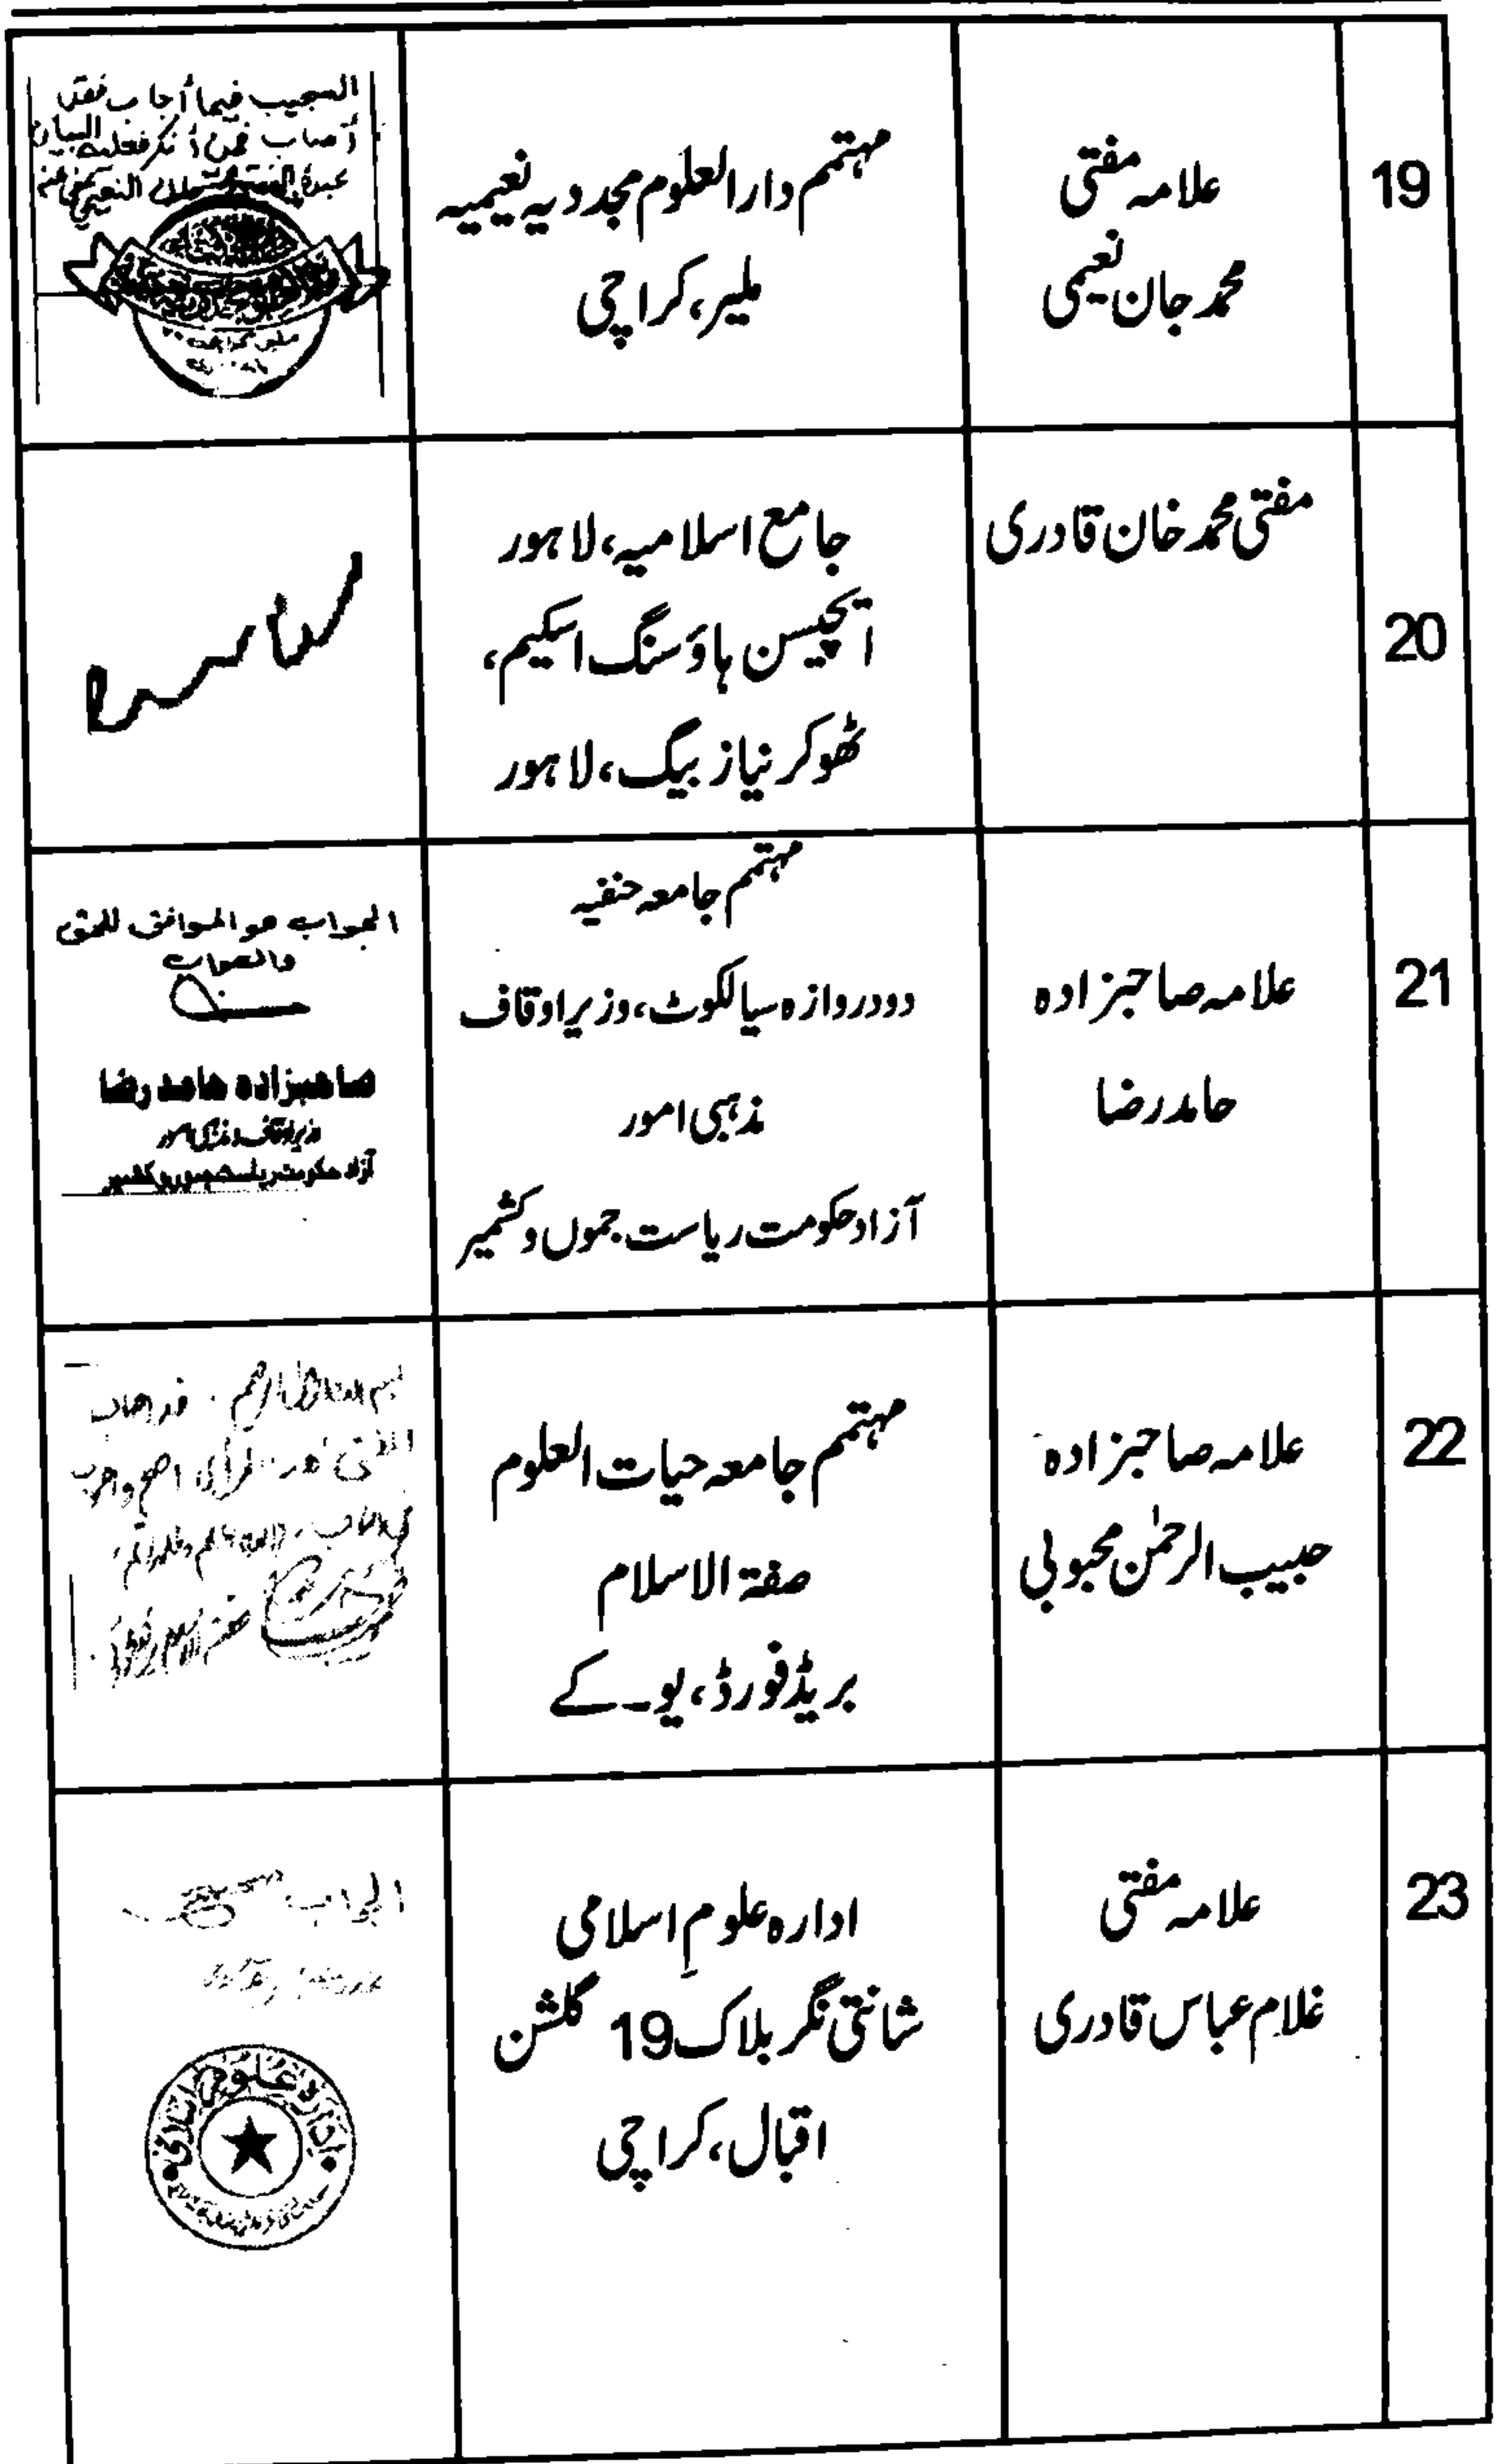 19
علامہ مفتی
محمد جان نعیمی
مہتمم دارالعلوم مجددیہ نعیمیہ
ملیر، کراچی
المجیب فیما أجاب فقد
أصاب فمن أنکر فعلیه البیان
20
مفتی محمد خان قادری
جامع اسلامیہ، لاہور
اتچیسن ہاؤسنگ اسکیم،
ٹھوکر نیاز بیگ، لاہور
21
علامہ صاحبزادہ
حامد رضا
مہتمم جامعہ حنفیہ
دودروازہ سیالکوٹ، وزیر اوقاف
مذہبی امور
آزاد حکومت ریاست جموں و کشمیر
الجواب هو الموافق للحق
والصواب
صاحبزادہ حامد رضا
وزیر اوقاف و مذہبی امور
آزاد حکومت ریاست جموں و کشمیر
22
علامہ صاحبزادہ
حبیب الرحمٰن محبوبی
مہتمم جامعہ حیات العلوم
صفۃ الاسلام
بریڈفورڈ، یو۔کے
23
علامہ مفتی
غلام عباس قادری
ادارہ علومِ اسلامی
شانتی نگر بلاک 19 گلشن
اقبال، کراچی
الجواب صحیح
ادارہ علوم اسلامی